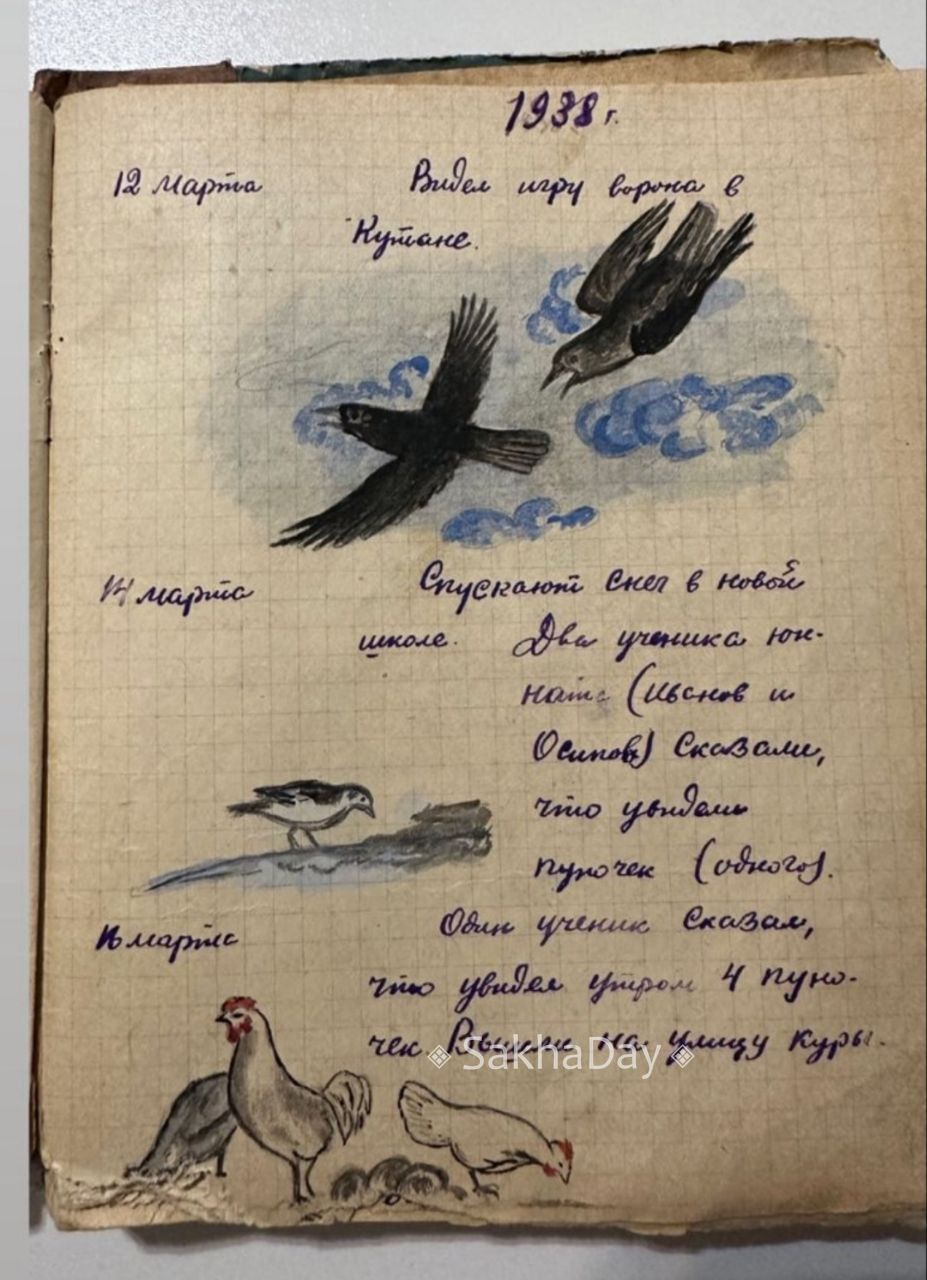 1938 г.
12 марта Видел игру ворона в
Кутане.
14 марта Спускают снег в новой
школе. Два ученика юн-
ната (Иванов и
Осипов) сказали,
что увидели
пуночек (одного).
16 марта Один ученик сказал,
что увидел утром 4 пуно-
чек Вышли на улицу куры.
SakhaDay